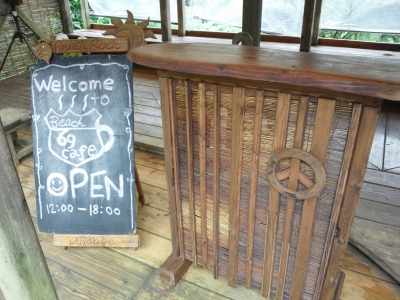 Beach Rock
Welcome
to
Beach
69
cafe
OPEN
12:00-18:00